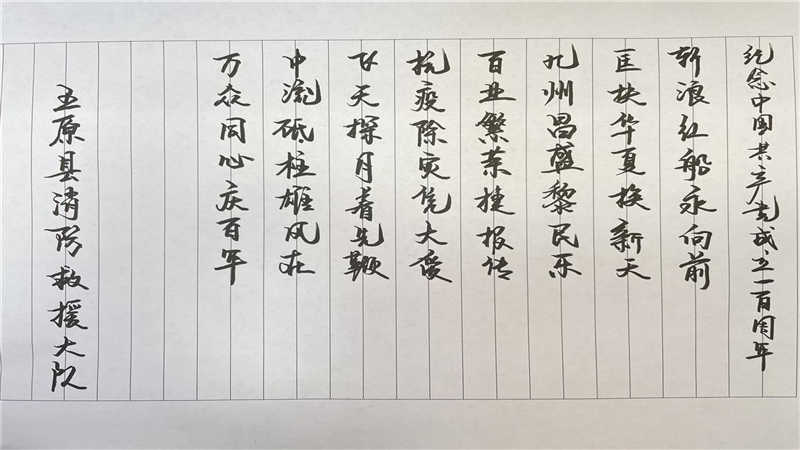 纪念中国共产党成立一百周年
斩浪红船永向前
匡扶华夏换新天
九州昌盛黎民乐
百业繁荣捷报传
抗疫除灾凭大爱
飞天探月着先鞭
中流砥柱雄风在
万众同心庆百年
五原县消防救援大队